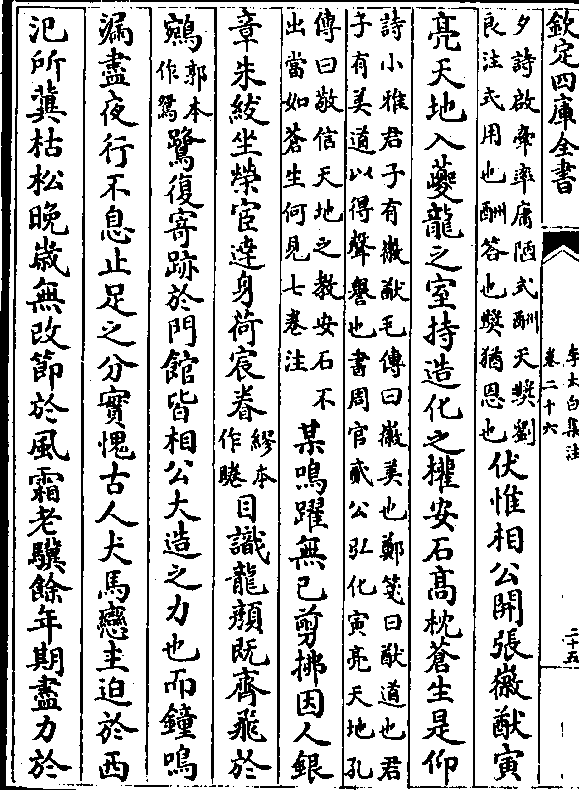 欽定四庫全書
李太白集注
卷二十六
二十五
夕詩啟彞率庸陋式酬天奬劉
良注式用也酬答也奬猶恩也
伏惟相公開張徽猷寅
亮天地入夔龍之室持造化之權安石髙枕蒼生是仰
詩小雅君子有徽猷毛傳曰徽美也鄭箋曰猷道也君
子有美道以得聲譽也書周官貳公弘化寅亮天地孔
傳曰敬信天地之教安石不
出當如蒼生何見七卷注
某鳴躍無已剪拂因人銀
章朱紱坐榮宦逹身荷宸眷
繆本
作睠
目識龍顔既齊飛於
鵷
郭本
作鴛
鷺復寄跡於門館皆相公大造之力也而鐘鳴
漏盡夜行不息止足之分實愧古人犬馬戀主迫於西
汜所冀枯松晚歲無改節於風霜老驥餘年期盡力於